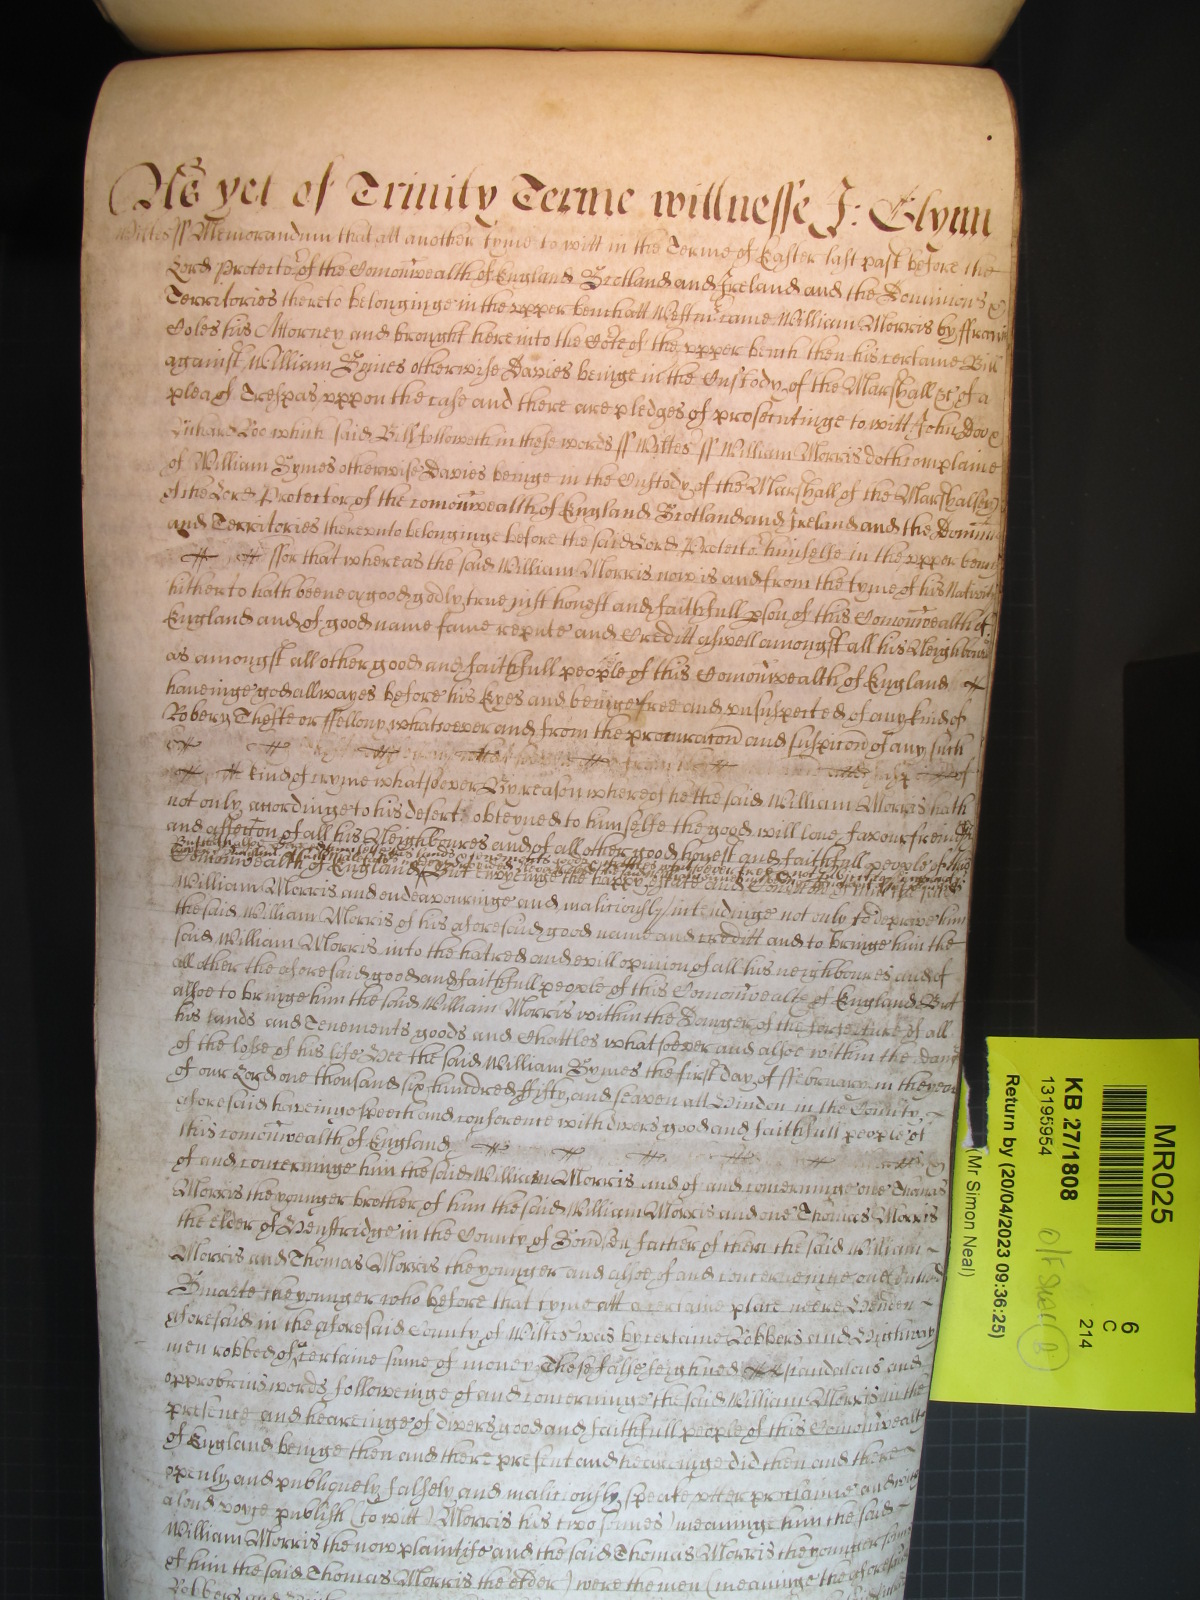 As yet of Trinity Terme wittnesse J: Glynn
Wiltes ss Memorandum that att another tyme to witt in the Terme of Easter last past before the
Lord Protector of the Comonwealth of England Scotland and Ireland and the Dominions &
Territories thereto belonginge in the upper bench att Westmr came William Morris by ffrancis
Coles his Attorney and brought here into the Cote of the upper bench then his certaine Bill
against William Symes otherwise Davies beinge in the Custody of the Marshall &c of a
plea of Trespas uppon the case and there are pledges of prosecutinge to witt John Doo &
Richard Roe which said Bill followeth in these words ss Wiltes ss William Morris doth complaine
of William Symes otherwise Davies beinge in the Custody of the Marshall of the Marshalsey
of the Lord Protector of the comonwealth of England Scotland and Ireland and the Dominions
and Territories thereunto belonginge before the said Lord Protector himselfe in the upper bench
ffor that whereas the said William Morris now is and from the tyme of his Nativity
hitherto hath beene a good godly true just honest and faithfull pson of this Comonwealth of
England and of good name fame repute and Creditt aswell amongst all his Neighbours
as amongst all other good and faithfull people of this Comonwealth of England
haveinge god allwayes before his Eyes and beinge free and unsuspected of any kind of
Robery Thefte or ffellony whatsoever and from the procuracon and suspicon of any such
of
kind of cryme whatsoever By reason whereof he the said William Morris hath
not only accordinge to his desert obteyned to himselfe the good will love favour freind
and affeccon of all his Neighboures and of all other good honest and faithfull people of this
Comonwealth of England But envyeinge the happy estate and Condicon of him the said
William Morris and endeavouringe and maliciously intendinge not only to deprive him
the said William Morris of his aforesaid good name and creditt and to bringe him the
said William Morris into the hatred and evill opinion of all his neighboures and of
all other the aforesaid good and faithfull people of this Comonwealth of England But
alsoe to bringe him the said William Morris within the Danger of the forfeiture of all
his lands and Tenements goods and Chattles whatsoever and alsoe within the danger
of the losse of his life Hee the said William Symes the first day of ffebruary in the yeare
of our Lord one thousand six hundred ffifty and seaven att Hindon in the County
aforesaid haveinge speech and conference with divers good and faithfull people of
this comonwealth of England
of and concerninge him the said William Morris and of and concerninge one Thomas
Morris the younger brother of him the said William Morris and one Thomas Morris
the elder of Henstridge in the County of Somerset father of them the said William
Morris and Thomas Morris the younger and alsoe of and concerninge one
the younger who before that tyme att a certaine place neere Hindon
aforesaid in the aforesaid County of Wiltes was by certaine Robbers and Highway
men robbed of a certaine sume of money These false feighned scandalous and
opprobrius words followeinge of and concerninge the said William Morris in the
presence and heareinge of divers good and faithfull people of this Comonwealth
of England beinge then and there present and heareinge did then and there
openly and publiquely falsely and maliciously speake utter proclaime and with
a loud voyce publish (to witt) Morris his two sonnes (meaninge him the said
William Morris the now plaintife and the said Thomas Morris the younger sonnes
of him the said Thomas Morris the elder) were the men (meaninge the aforesaid
Robbers and
MR025
KB 27/1808
13195954
Return by (20/04/2023 09:36:25)
(Mr Simon Neal)
6
C
214